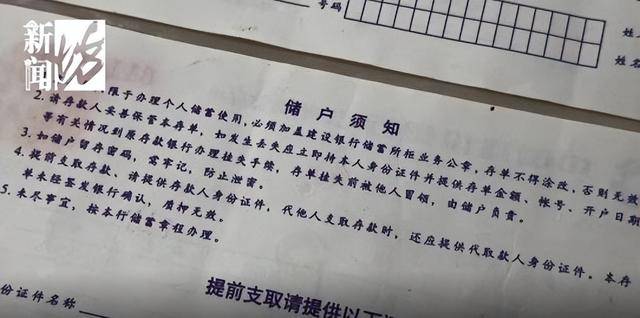 新闻
号码
姓
姓名
储户须知
限于办理个人储蓄使用,必须加盖建设银行储蓄所柜业务公章,存单不得涂改,否则无效
2. 请存款人妥善保管本存单,如发生丢失应立即持本人身份证件并提供存单金额、帐号、开户日期
等有关情况到原存款银行办理挂失手续,存单挂失前被他人冒领,由储户负责。
3. 如储户留存密码,需牢记,防止泄密。
4. 提前支取存款、请提供存款人身份证件,代他人支取存款时,还应提供代取款人身份证件。本存
单未经签发银行确认,质押无效。
5. 未尽事宜,按本行储蓄章程办理。
提前支取请提供以下
份证件名称